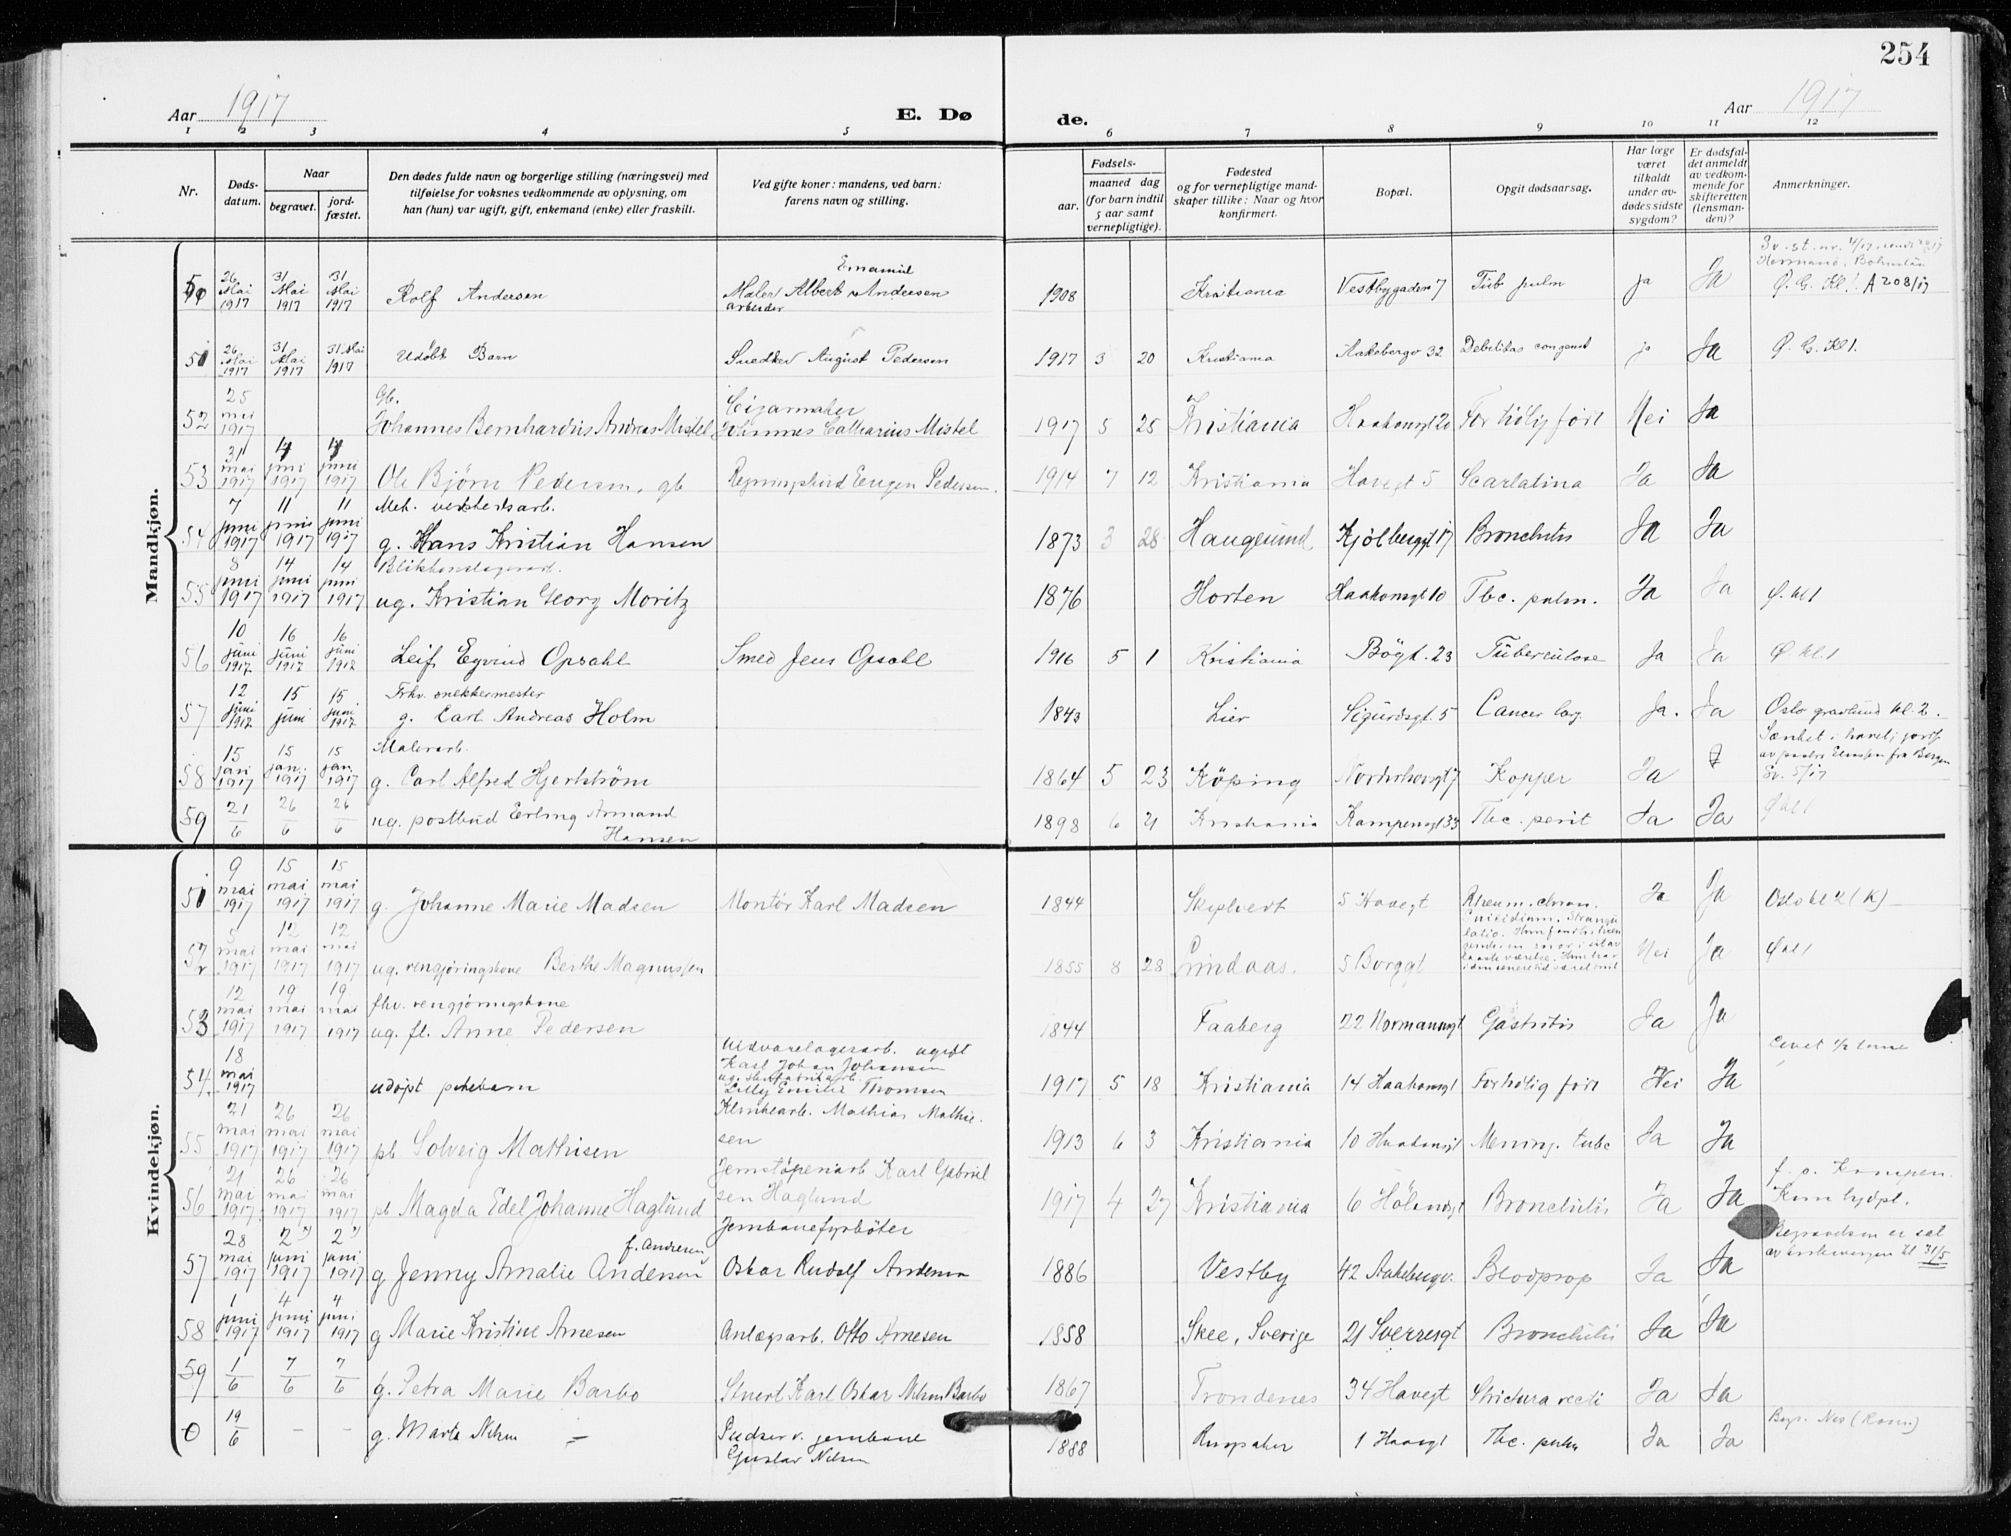 254
Aar 1917
E. Dø
de.
Aar 1917
1 2 3 4 5 6 7 8 9 10 11 12
Nr.
Døds-
datum.
Naar
begravet.
jord-
fæstet.
Den dødes fulde navn og borgerlige stilling (næringsvei) med
tilføielse for voksnes vedkommende av oplysning, om
han (hun) var ugift, gift, enkemand (enke) eller fraskilt.
Ved gifte koner: mandens, ved barn:
farens navn og stilling.
Fødsels-
aar.
maaned dag
(for barn indtil
5 aar samt
vernepligtige).
Fødested
og for vernepligtige mand-
skaper tillike: Naar og hvor
konfirmert.
Bopæl.
Opgit dødsaarsag.
Har læge
været
tilkaldt
under av-
dødes sidste
sygdom?
Er dødsfal-
det anmeldt
av vedkom-
mende for
skifteretten
(lensman-
den)?
Anmerkninger.
Mandkjøn.
26 Mai 1917 31 Mai 1917 31 Mai 1917 Rolf Andersen Maler Albert Emanuel Andersen arbeider 1908 Kristiania Vestbygaden 7 Tub pulm ja Ja Ø. G. Kl 1. A 208/17
51 26 Mai 1917 31 Mai 1917 31 Mai 1917 Udøbt Barn Snedker August Pedersen 1917 3 20 Kristiania Aakebergv 32 Debilitas congenit ja Ja Ø. G. Kl 1.
52 25 mai 1917 Gb. Johannes Bernhardus Andreas Mistel Cigarmaker Johannes Catharius Mistel 1917 5 25 Kristiania Haakonsgt 20 For tidlig født Nei Ja
53 31 mai 1917 4 juni 1917 4 juni 1917 Ole Bjørn Pedersen, gb Eugen Pedersen. 1914 7 12 Kristiania Havegt 5 Scarlatina Ja Ja
54 7 juni 1917 11 juni 1917 11 juni 1917 Mek. verkstedsarb. g. Hans Kristian Hansen 1873 3 28 Haugesund Kjölberggt 17 Bronchitis Ja Ja
55 8 juni 1917 14 juni 1917 14 juni 1917 ug. Kristian Georg Moritz 1876 Horten Haakonsgt 10 Tbc. pulm. Ja Ja Ø. kl 1
56 10 juni 1917 16 juni 1917 16 juni 1917 Leif Eyvind Opsahl Smed Jens Opsahl 1916 5 1 Kristiania Bögt. 23 Tuberculose Ja Ja Ø kl. 1
57 12 juni 1917 15 juni 15 juni 1917 Frhv. snekkermester g. Carl Andreas Holm 1843 Lier Sigurdsgt. 5 Cancer lary. Ja. Ja Oslo gravlund kl. 2.
58 15 jan 1917 15 jan. 1917 15 jan. 1917 Malerarb. g. Carl Alfred Hjertström 1864 5 23 Köping Nordrehovsgt 7 Kopper Ja Sænket i havet; jordf. av pastor fra Bergen
59 21/6 26/6 26/6 ug. postbud Erling Armand Hansen 1898 6 21 Kristiania Kampensgt 33 Tbc. perit Ja Ja Ø kl 1
Kvindekjøn.
51 9 mai 1917 15 mai 1917 15 mai 1917 g. Johanne Marie Madsen Montör Karl Madsen 1844 5 Havegt Rheum. chron. Ja Ja Oslo kl 2 (K)
52 5 mai 1917 12 mai 1917 12 mai 1917 ug. rengjøringskone Berthe Magnussen 1855 8 28 Lindaas. 5 Borggt Suicidium. Strangulatio. Nei Ja Ø kl 1
53 12 mai 1917 19 mai 1917 19 mai 1917 fhv. rengjøringskone ug. fl. Anne Pedersen 1844 Faaberg 22 Normannsgt Gastritis Ja Ja
54 18 mai 1917 udøpt pikebarn Uldvarelagerarb. ugift Karl Johan Johansen Lilly Emilie Thomsen 1917 5 18 Kristiania 14 Haakonsgt For tidlig født Nei Ja Levet 1/2 time
55 21 mai 1917 26 mai 1917 26 mai 1917 pb Solveig Mathisen Mathias Mathiesen 1913 6 3 Kristiania 10 Haakonsgt Mening. tube Ja Ja
56 21 mai 1917 26 mai 1917 26 mai 1917 pb Magda Edel Johanne Haglund Jernstöperiarb Karl Gabrielsen Haglund 1917 4 27 Kristiania 6 Hölandsgt Bronchitis Ja Ja f. o. Kampen. Kun hjdpt.
57 28 mai 1917 2 juni 1917 2 juni 1917 g Jenny Amalie Andersen f. Andresen Jernbanefyrböter Oskar Rudolf Andersen 1886 Vestby 42 Aakebergv. Blodprop Ja Ja Begravelsen er sat kl 31/5
58 1 juni 1917 4 juni 1917 4 juni 1917 g Marie Kristine Arnesen Anlægsarb. Otto Arnesen 1858 Skee, Sverige 21 Sverresgt Bronchitis Ja Ja
59 1/6 7/6 7/6 g. Petra Marie Barbo Stuert Karl Oskar Nilsen Barbo 1867 Trondenes 34 Havegt Strictura recti Ja Ja
0 19/6 - - g. Marta Nilsen Pudser v. jernbane Gustav Nilsen 1888 1 Havegt Tbc. pulm Ja Ja Begr. Nes (Rom.)